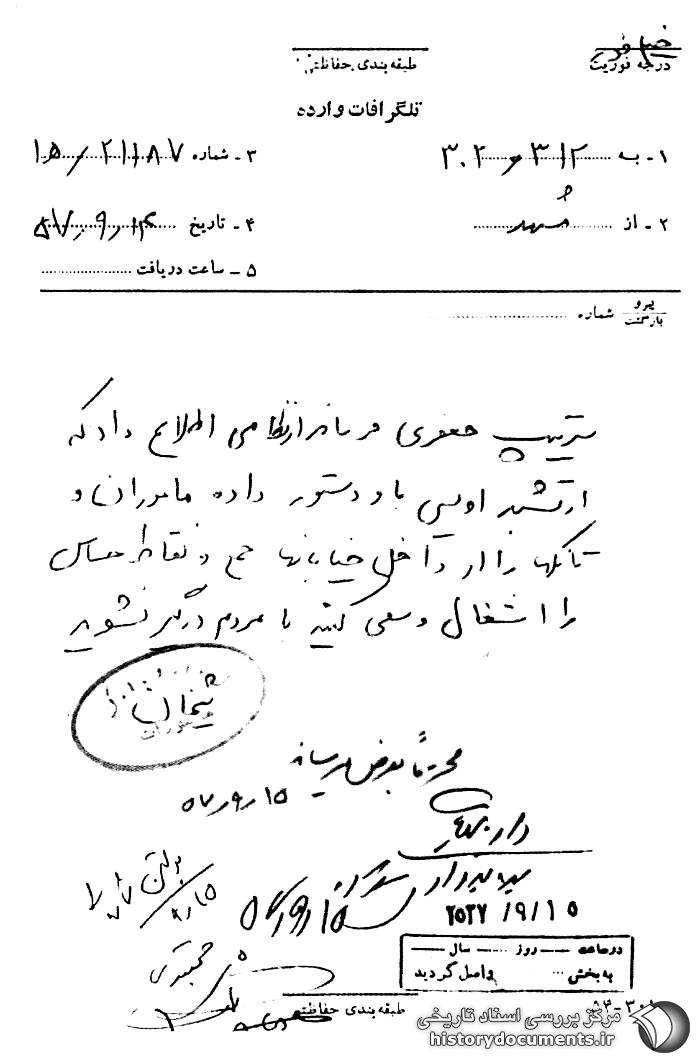 خیلی فوری
درجه فوریت
طبقه‌بندی حفاظتی
تلگرافات وارده
۱ - به ۳۱۲ و ۳۰۲
۳ - شماره ۱۵/۲۱۱۸۷
۲ - از مشهد
۴ - تاریخ ۵۷،۹،۱۴
۵ - ساعت دریافت
پیرو
بازگشت
شماره
سرتیپ جعفری فرماندار نظامی اطلاع داد که
ارتشبد اویسی باو دستور داده ماموران و
تانکها را از داخل خیابانها جمع و نقاط حساس
را اشغال و سعی کنید با مردم درگیر نشوید
شیخان
محترماً بعرض میرساند
۱۵٫۹٫۵۷
۱۵٫۹٫۵۷
۲۵۳۷/۹/۱۵
بولتن
۹٫۱۵
درساعت روز سال
به بخش واصل گردید
طبقه‌بندی حفاظتی
مرکز بررسی اسناد تاریخی
historydocuments.ir